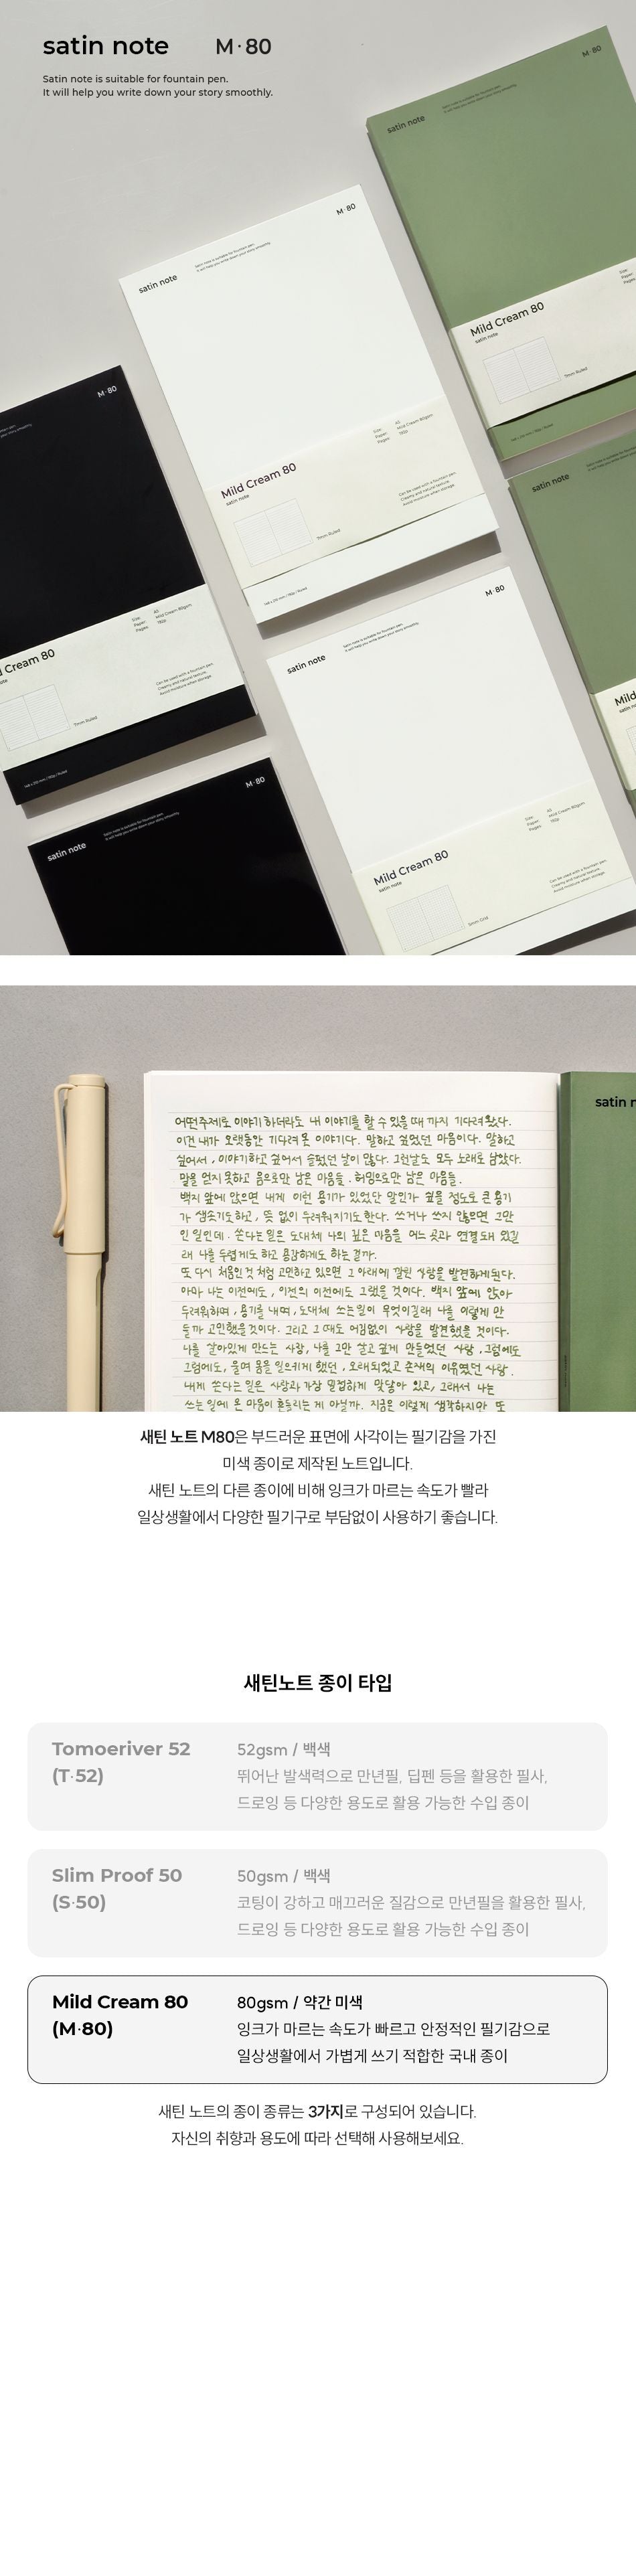 satin note M·80
Satin note is suitable for fountain pen.
It will help you write down your story smoothly.
M·80
satin note
Mild Cream 80
satin note
7mm Ruled
M·80
satin note
Satin note is suitable for fountain pen.
It will help you write down your story smoothly.
Size A5
Paper Mild Cream 80gsm
Pages 192p
Mild Cream 80
satin note
7mm Ruled
Can be used with a fountain pen.
Creamy and natural texture.
Avoid moisture when storage.
148 x 210 mm / 192p / Ruled
M·80
Size A5
Paper Mild Cream 80gsm
Pages 192p
Cream 80
7mm Ruled
Can be used with a fountain pen.
Creamy and natural texture.
Avoid moisture when storage.
148 x 210 mm / 192p / Ruled
satin note
M·80
satin note
Satin note is suitable for fountain pen.
It will help you write down your story smoothly.
Size A5
Paper Mild Cream 80gsm
Pages 192p
Mild Cream 80
satin note
5mm Grid
Can be used with a fountain pen.
Creamy and natural texture.
Avoid moisture when storage.
M·80
satin note
Satin note is suitable for fountain pen.
It will help you write down your story smoothly.
satin n
어떤주제로 이야기하더라도 내 이야기를 할 수 있을 때 까지 기다려왔다.
이건 내가 오랫동안 기다려온 이야기다. 말하고 싶었던 마음이다. 말하고
싶어서, 이야기하고 싶어서 슬펐던 날이 많다. 그런날도 모두 노래로 남았다.
말을 얻지 못하고 음으로만 남은 마음들. 허밍으로만 남은 마음들.
백지 앞에 앉으면 내게 이런 용기가 있었단 말인가 싶을 정도로 큰 용기
가 샘솟기도하고, 뜻 없이 두려워지기도한다. 쓰거나 쓰지 않으면 그만
인 일인데. 쓴다는일은 도대체 나의 깊은 마음을 어느곳과 연결돼 있길
래 나를 두렵게도 하고 용감하게도 하는걸까.
또 다시 처음인것처럼 고민하고 있으면 그 아래에 깔린 사랑을 발견하게된다.
아마 나는 이전에도, 이전의 이전에도 그랬을 것이다. 백지 앞에 앉아
두려워하며, 용기를 내며, 도대체 쓰는일이 무엇이길래 나를 이렇게 만
들까 고민했을것이다. 그리고 그때도 어김없이 사랑을 발견했을 것이다.
나를 살아있게 만드는 사랑, 나를 그만 살고 싶게 만들었던 사랑. 그럼에도
그럼에도, 울며 몸을 일으키게 했던, 오래되었고 존재의 이유였던 사랑.
내게 쓴다는 일은 사랑과 가장 밀접하게 맞닿아 있고, 그래서 나는
쓰는일에 온 마음이 흔들리는 게 아닐까. 지금은 이렇게 생각하지만 또
새틴 노트 M80은 부드러운 표면에 사각이는 필기감을 가진
미색 종이로 제작된 노트입니다.
새틴 노트의 다른 종이에 비해 잉크가 마르는 속도가 빨라
일상생활에서 다양한 필기구로 부담없이 사용하기 좋습니다.
새틴노트 종이 타입
Tomoeriver 52
(T·52)
52gsm / 백색
뛰어난 발색력으로 만년필, 딥펜 등을 활용한 필사,
드로잉 등 다양한 용도로 활용 가능한 수입 종이
Slim Proof 50
(S·50)
50gsm / 백색
코팅이 강하고 매끄러운 질감으로 만년필을 활용한 필사,
드로잉 등 다양한 용도로 활용 가능한 수입 종이
Mild Cream 80
(M·80)
80gsm / 약간 미색
잉크가 마르는 속도가 빠르고 안정적인 필기감으로
일상생활에서 가볍게 쓰기 적합한 국내 종이
새틴 노트의 종이 종류는 3가지로 구성되어 있습니다.
자신의 취향과 용도에 따라 선택해 사용해보세요.